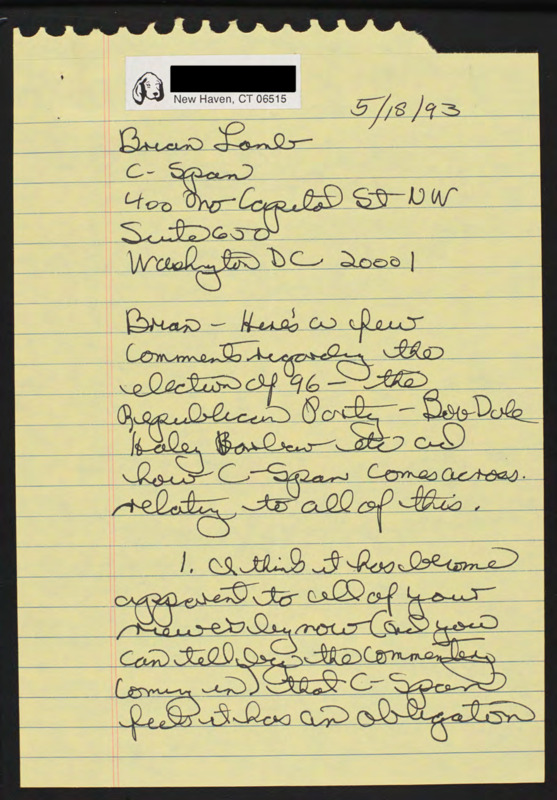 New Haven, CT 06515
5/18/93
Brian Lamb
C-Span
400 No Capitol St NW
Suite 650
Washington DC 20001
Brian - Here's a few
comments regarding the
election of 96 - the
Republican Party - Bob Dole
Haley Barbour etc and
how C-Span comes across.
relating to all of this.
1. I think it has become
apparent to all of your
viewers by now (and you
can tell by the commentary
coming in) that C-Span
feels it has an obligation